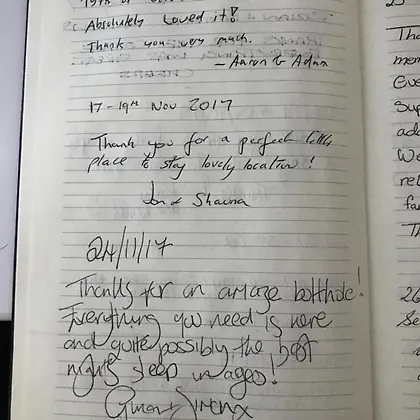 Absolutely Loved it!
Thank you very much.
— Aaron &
17 - 19th Nov 2017
Thank you for a perfect little
place to stay lovely location!
Jon & Shauna
24/11/17
Thanks for an amaze bolthole!
Everything you need is here
and quite possibly the best
nights sleep in ages!
25
Tha
mem
Eve
Sup
add
Wo
rel
fa
Th
26
Se